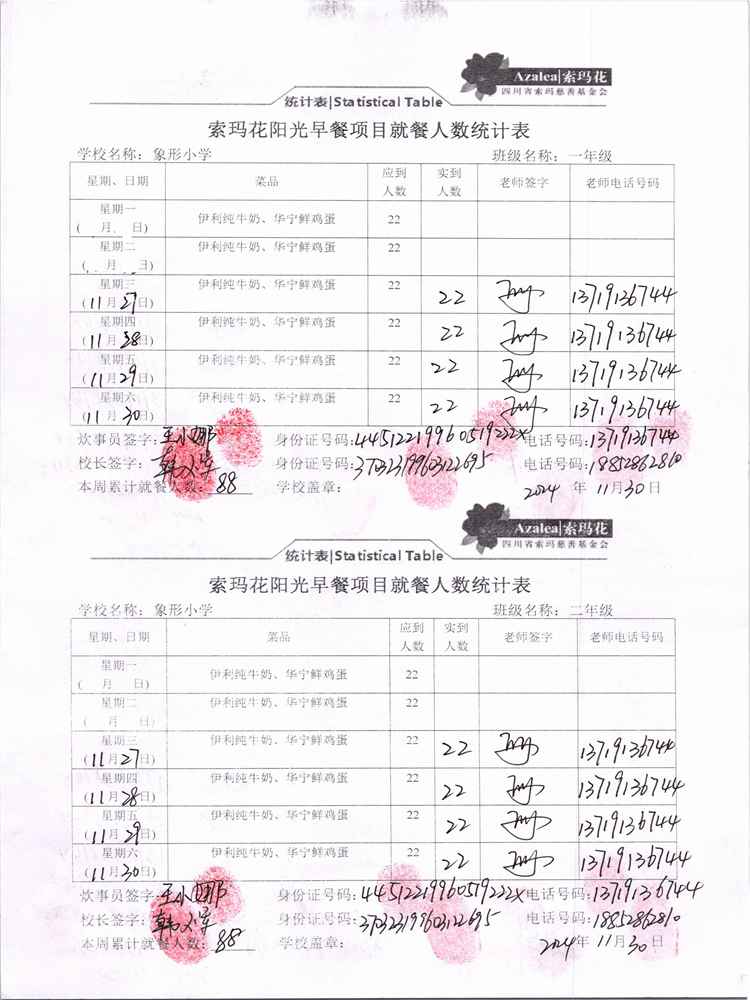 Azalea|索玛花
四川省索玛慈善基金会
统计表|Statistical Table
索玛花阳光早餐项目就餐人数统计表
学校名称：象形小学 班级名称：一年级
星期、日期 菜品 应到人数 实到人数 老师签字 老师电话号码
星期一
( 月 日) 伊利纯牛奶、华宁鲜鸡蛋 22
星期二
( 月 日) 伊利纯牛奶、华宁鲜鸡蛋 22
星期三
(11月27日) 伊利纯牛奶、华宁鲜鸡蛋 22 22 13719136744
星期四
(11月28日) 伊利纯牛奶、华宁鲜鸡蛋 22 22 13719136744
星期五
(11月29日) 伊利纯牛奶、华宁鲜鸡蛋 22 22 13719136744
星期六
(11月30日) 伊利纯牛奶、华宁鲜鸡蛋 22 22 13719136744
炊事员签字：王小娜 身份证号码：44512219960519222X 电话号码：13719136744
校长签字：韩 军 身份证号码：370323199603122695 电话号码：18852862810
本周累计就餐人数：88 学校盖章： 2024年11月30日
Azalea|索玛花
四川省索玛慈善基金会
统计表|Statistical Table
索玛花阳光早餐项目就餐人数统计表
学校名称：象形小学 班级名称：二年级
星期、日期 菜品 应到人数 实到人数 老师签字 老师电话号码
星期一
( 月 日) 伊利纯牛奶、华宁鲜鸡蛋 22
星期二
( 月 日) 伊利纯牛奶、华宁鲜鸡蛋 22
星期三
(11月27日) 伊利纯牛奶、华宁鲜鸡蛋 22 22 13719136744
星期四
(11月28日) 伊利纯牛奶、华宁鲜鸡蛋 22 22 13719136744
星期五
(11月29日) 伊利纯牛奶、华宁鲜鸡蛋 22 22 13719136744
星期六
(11月30日) 伊利纯牛奶、华宁鲜鸡蛋 22 22 13719136744
炊事员签字：王小娜 身份证号码：44512219960519222X 电话号码：13719136744
校长签字：韩 军 身份证号码：370323199603122695 电话号码：18852862810
本周累计就餐人数：88 学校盖章： 2024年11月30日